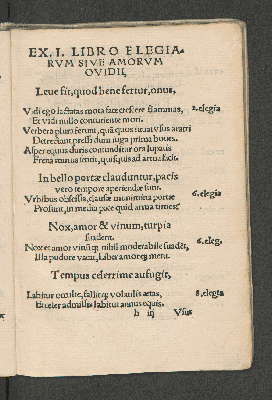 EX. I. LIBRO ELEGIA-
RVM SIVE AMORVM
OVIDII,
Leue fit, quod bene fertur, onus,
Vidi ego iactatas mota face crescere flammas, 2. elegia
Et vidi nullo concutiente mori.
Verbera plura ferunt, quā quos iuuat vsus aratri
Detrectant pressi dum iuga prima boues.
Asper equus duris contunditur ora lupatis
Frena minus sentit, quisquis ad arma facit.
In bello portæ clauduntur, pacis
vero tempore aperiendæ sunt.
Vrbibus obsessis, clausæ munimina portæ 6. elegia
Prosunt, in media pace quid arma times?
Nox, amor & vinum, turpia
suadent.
Nox et amor vinūq; nihil moderabile suadēt, 6. eleg.
Illa pudore vacat, Liber amorq; metu.
Tempus celerrime aufugit,
Labitur occulte, fallitq; volatilis ætas, 8. elegia
Et celer admissis labitur annus equis.
h iij Vsus